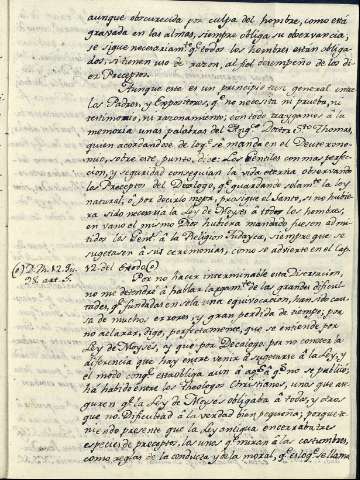 aunque obscurecida por culpa del hombre, como está
gravada en las almas, siempre obliga su observancia,
se sigue necesariamte. qe. todos los hombres están obliga-
dos, si tienen uso de razon, al fiel desempeño de los di-
ez Preceptos.
Aunque este es un principio tan general entre
los Padres, y Expositores, q. no necesita ni prueba, ni
testimonio, ni razonamiento; con todo traygamos á la
memoria unas palabras del Angco. Doctor Sto. Thomas,
quien acordandose de loqe. se manda en el Deuterono-
mio, sobre este punto, dice: Los Gentiles con mas perfec-
cion, y seguridad conseguian la vida eterna observando
los Preceptos del Decalogo, qe. guardando solamte. la ley
natural, o, por decirlo mejor, prosigue el Santo, si no hubie-
ra sido necesaria la Ley de Moyses á todos los hombres,
en vano el mismo Dios hubiera mandado fuesen admi-
tidos los Gents. á la Religion Judayca, siempre que se
sugetasen a sus ceremonias, como se advierte en el cap.
12. del Exodo (o)
(o) D. Th. 12. Qu.
98. art. 5.
Por no hacer interminable esta Disertacion,
no me detendré á hablar largamte. de las grandes dificul-
tades, qe. fundadas en sola una equivocacion, han sido cau-
sa de muchos errores, y gran perdida de tiempo; por
no aclarar, digo, perfectamente, que se entiende por
Ley de Moyses, y que por Decalogo: por no conocer la
diferencia que hay entre venir á sugetarse á la Ley, y
el modo conqe. esta obliga aun á aqs. á qs. no se publicó;
ha habido entre los Theologos Christianos, unos que ase-
guren qe. la Ley de Moyses obligaba á todos, y otros
que no. Dificultad á la verdad bien pequeña; porque te-
niendo presente que la Ley antigua encerraba tres
especies de preceptos, los unos qe. miran á las costumbres,
como reglas de la conducta y de la moral, qe. es lo qe. se llama